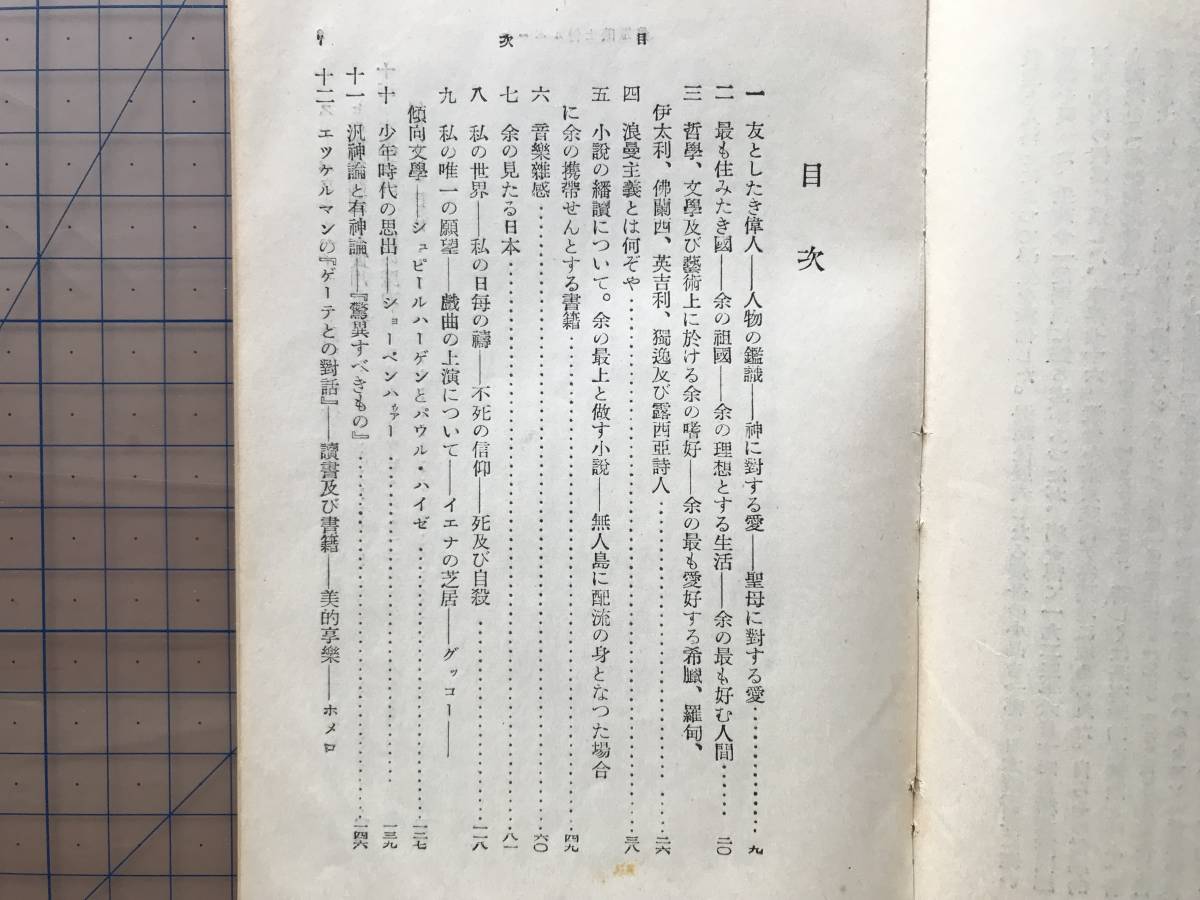 目次
目次
一 友としたき偉人――人物の鑑識――神に對する愛――聖母に對する愛…………九
二 最も住みたき國――余の祖國――余の理想とする生活――余の最も好む人間……二〇
三 哲學、文學及び藝術上に於ける余の嗜好――余の最も愛好する希臘、羅甸、
伊太利、佛蘭西、英吉利、獨逸及び露西亞詩人…………二六
四 浪曼主義とは何ぞや…………三八
五 小說の繙讀について。余の最上と做す小說――無人島に配流の身となつた場合
に余の携帶せんとする書籍…………四九
六 音樂雜感…………六〇
七 余の見たる日本…………八一
八 私の世界――私の日每の禱――不死の信仰――死及び自殺…………一一八
九 私の唯一の願望――戲曲の上演について――イエナの芝居――グッコー――
傾向文學――シュピールハーゲンとパウル・ハイゼ…………一二七
十 少年時代の思出――ショーペンハゥアー…………一三九
十一 汎神論と有神論――『驚異すべきもの』…………一四六
十二 エツケルマンの『ゲーテとの對話』――讀書及び書籍――美的享樂――ホメロ